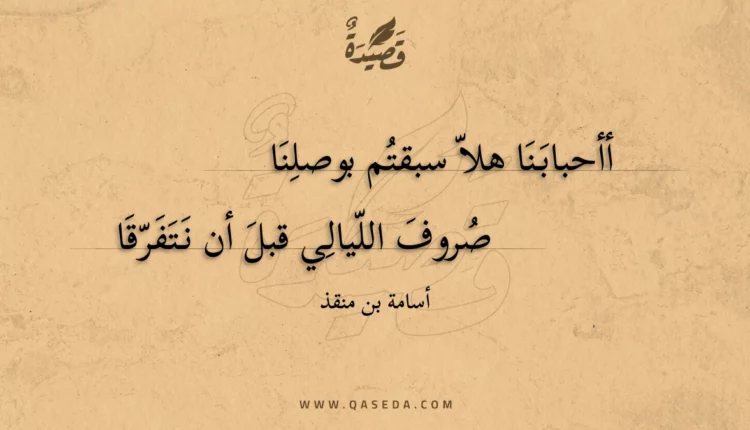 قَصِيْدَةٌ
أأحبابَنَا هلاّ سبقتُم بوصلِنَا
صُروفَ اللّيالِي قبلَ أن نَتَفَرّقَا
أسامة بن منقذ
WWW.QASEDA.COM